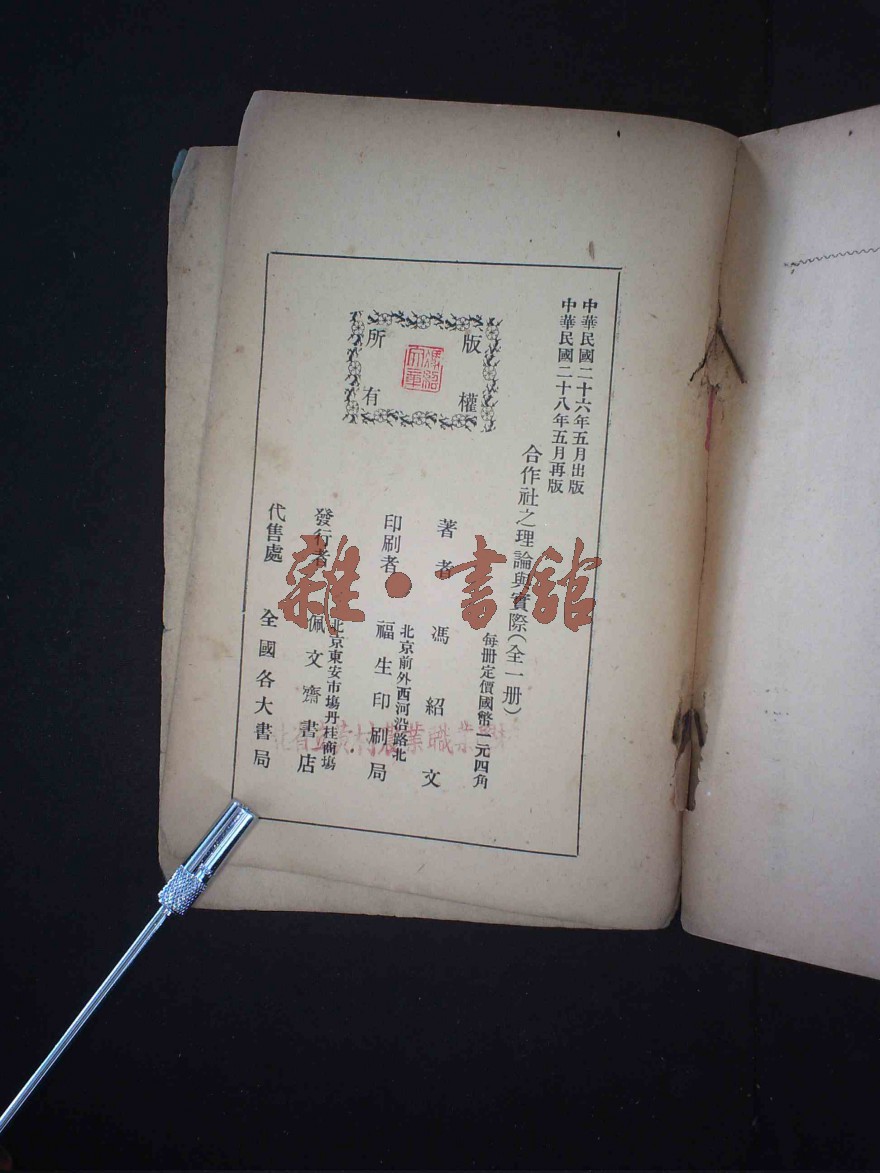 中華民國二十六年五月出版
中華民國二十八年五月再版
合作社之理論與實際（全一册）
每册定價國幣一元四角
版權
所有
馮紹文章
著者 馮紹文
北京前外西河沿路北
印刷者 福生印刷局
北京東安市場丹桂商場
發行者 佩文齋書店
代售處 全國各大書局
雜·書館
村農業職業